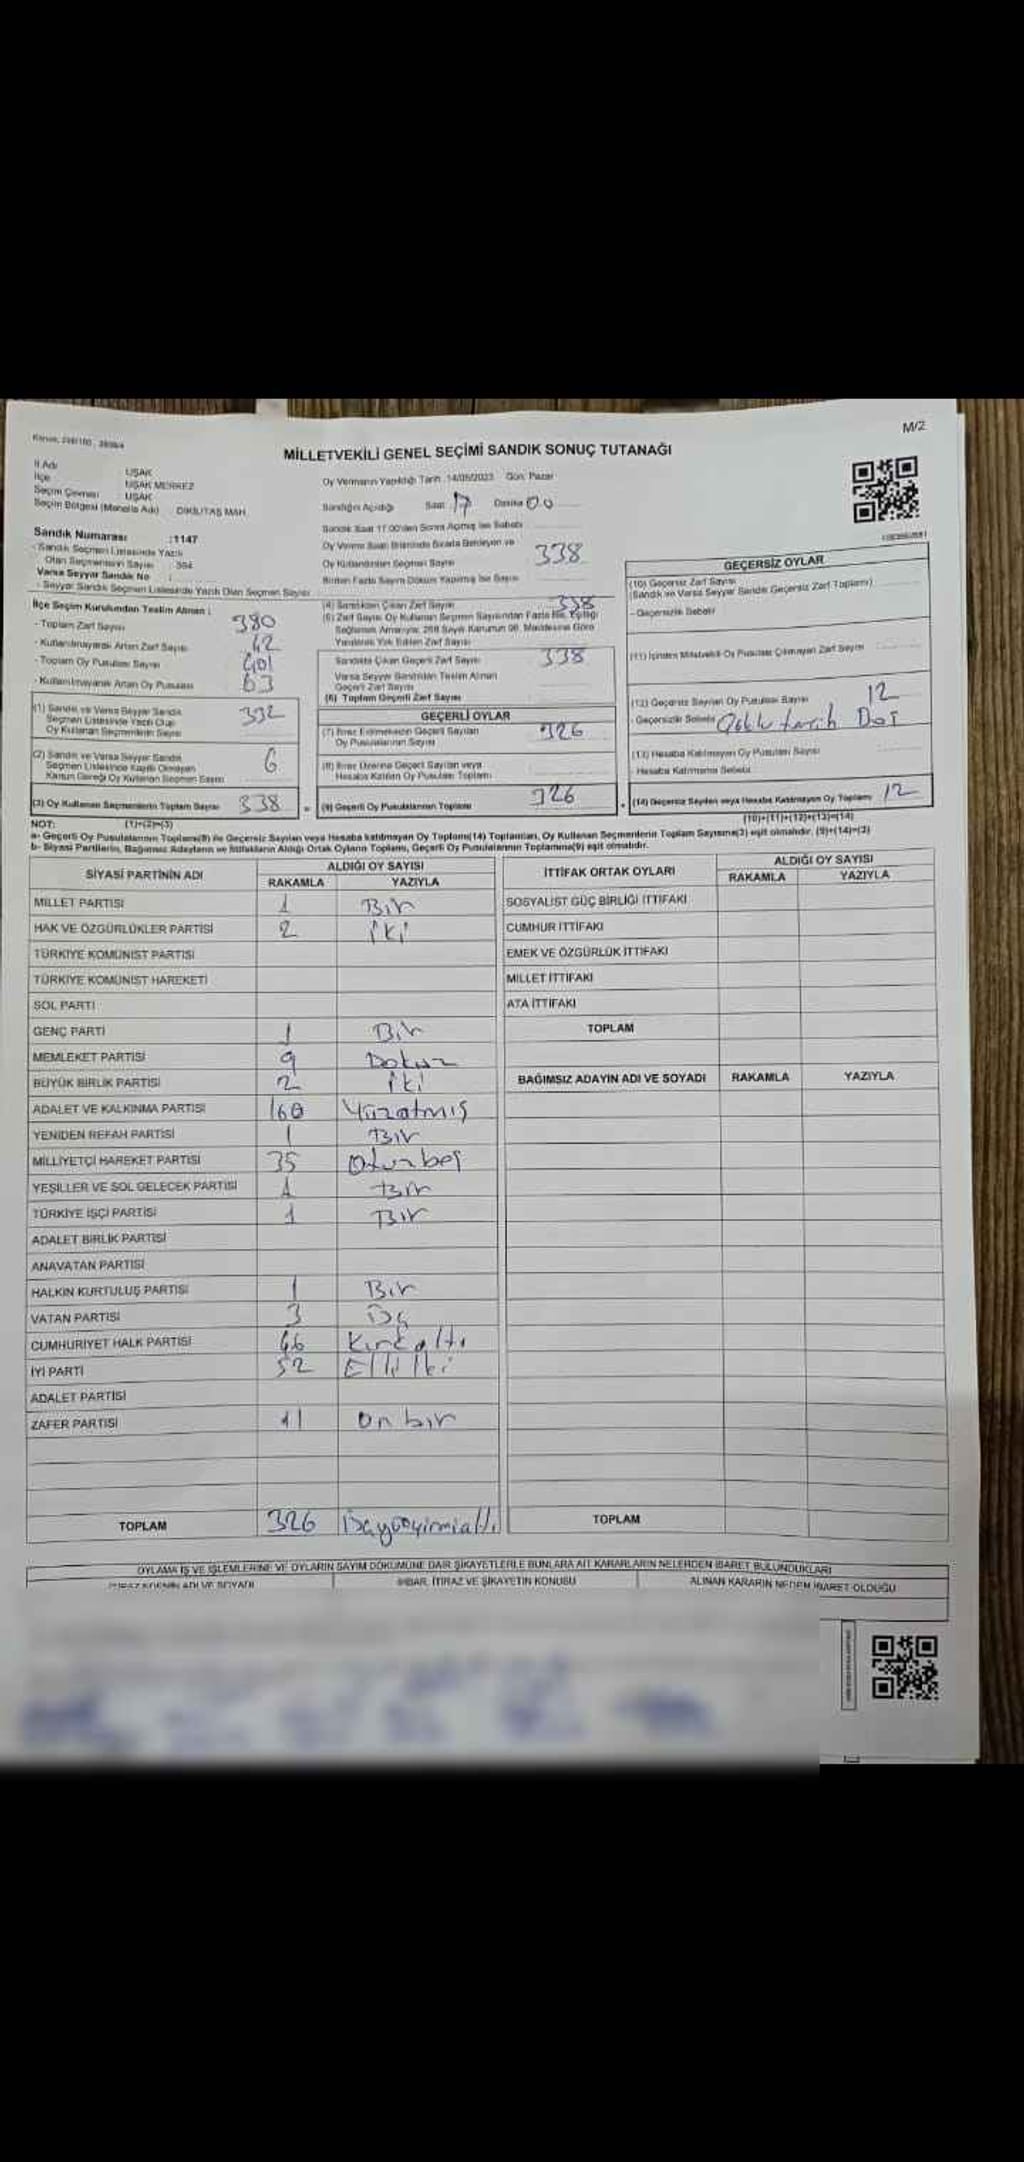 M/2
MİLLETVEKİLİ GENEL SEÇİMİ SANDIK SONUÇ TUTANAĞI
İl Adı UŞAK
İlçe UŞAK MERKEZ
Seçim Çevresi UŞAK
Seçim Bölgesi (Mahalle Adı) DİKİLİTAŞ MAH.
Oy Vermenin Yapıldığı Tarih :14/05/2023 Gün: Pazar
Sandığın Açıldığı Saat 17 Dakika 00
Sandık Saat 17.00'den Sonra Açılmış İse Sebebi
Oy Verme Saati Bitiminde Sırada Bekleyen ve
Oy Kullandırılan Seçmen Sayısı 338
Birden Fazla Sayım Döküm Yapılmış İse Sayısı
Sandık Numarası :1147
- Sandık Seçmen Listesinde Yazılı
Olan Seçmenlerin Sayısı
Varsa Seyyar Sandık No :
- Seyyar Sandık Seçmen Listesinde Yazılı Olan Seçmen Sayısı
İlçe Seçim Kurulundan Teslim Alınan :
- Toplam Zarf Sayısı 380
- Kullanılmayarak Artan Zarf Sayısı 42
- Toplam Oy Pusulası Sayısı 401
- Kullanılmayarak Artan Oy Pusulası 63
(1) Sandık ve Varsa Seyyar Sandık
Seçmen Listesinde Yazılı Olup
Oy Kullanan Seçmenlerin Sayısı 332
(2) Sandık ve Varsa Seyyar Sandık
Seçmen Listesinde Kayıtlı Olmayan
Kanun Gereği Oy Kullanan Seçmen Sayısı 6
(3) Oy Kullanan Seçmenlerin Toplam Sayısı 338
(4) Sandıktan Çıkan Zarf Sayısı 338
(5) Zarf Sayısı Oy Kullanan Seçmen Sayısından Fazla ise, Eşitliği
Sağlamak Amacıyla, 298 Sayılı Kanunun 98. Maddesine Göre
Yakılarak Yok Edilen Zarf Sayısı
Sandıkta Çıkan Geçerli Zarf Sayısı 338
Varsa Seyyar Sandıktan Teslim Alınan
Geçerli Zarf Sayısı
(6) Toplam Geçerli Zarf Sayısı
GEÇERLİ OYLAR
(7) İtiraz Edilmeksizin Geçerli Sayılan
Oy Pusulalarının Sayısı 326
(8) İtiraz Üzerine Geçerli Sayılan veya
Hesaba Katılan Oy Pusulası Toplamı
(9) Geçerli Oy Pusulalarının Toplamı 326
GEÇERSİZ OYLAR
(10) Geçersiz Zarf Sayısı
(Sandık ve Varsa Seyyar Sandık Geçersiz Zarf Toplamı)
- Geçersizlik Sebebi
(11) İçinden Milletvekili Oy Pusulası Çıkmayan Zarf Sayısı
(12) Geçersiz Sayılan Oy Pusulası Sayısı 12
- Geçersizlik Sebebi
(13) Hesaba Katılmayan Oy Pusulası Sayısı
- Hesaba Katılmama Sebebi
(14) Geçersiz Sayılan veya Hesaba Katılmayan Oy Toplamı 12
NOT: (1)+(2)=(3) (10)+(11)+(12)+(13)=(14)
a- Geçerli Oy Pusulalarının Toplamı(9) ile Geçersiz Sayılan veya Hesaba katılmayan Oy Toplamı(14) Toplamları, Oy Kullanan Seçmenlerin Toplam Sayısına(3) eşit olmalıdır. (9)+(14)=(3)
b- Siyasi Partilerin, Bağımsız Adayların ve İttifakların Aldığı Ortak Oyların Toplamı, Geçerli Oy Pusulalarının Toplamına(9) eşit olmalıdır.
SİYASİ PARTİNİN ADI ALDIĞI OY SAYISI
RAKAMLA YAZIYLA
MİLLET PARTİSİ 1 Bir
HAK VE ÖZGÜRLÜKLER PARTİSİ 2 iki
TÜRKİYE KOMÜNİST PARTİSİ
TÜRKİYE KOMÜNİST HAREKETİ
SOL PARTİ
GENÇ PARTİ 1 Bir
MEMLEKET PARTİSİ 9 Dokuz
BÜYÜK BİRLİK PARTİSİ 2 iki
ADALET VE KALKINMA PARTİSİ 160 Yüzatmış
YENİDEN REFAH PARTİSİ 1 Bir
MİLLİYETÇİ HAREKET PARTİSİ 35 Otuzbeş
YEŞİLLER VE SOL GELECEK PARTİSİ 1 Bir
TÜRKİYE İŞÇİ PARTİSİ 1 Bir
ADALET BİRLİK PARTİSİ
ANAVATAN PARTİSİ
HALKIN KURTULUŞ PARTİSİ 1 Bir
VATAN PARTİSİ 3 Üç
CUMHURİYET HALK PARTİSİ 46 Kırkaltı
İYİ PARTİ 52 Elliiki
ADALET PARTİSİ
ZAFER PARTİSİ 11 On bir
TOPLAM 326 Üçyüzyirmialtı
İTTİFAK ORTAK OYLARI ALDIĞI OY SAYISI
RAKAMLA YAZIYLA
SOSYALİST GÜÇ BİRLİĞİ İTTİFAKI
CUMHUR İTTİFAKI
EMEK VE ÖZGÜRLÜK İTTİFAKI
MİLLET İTTİFAKI
ATA İTTİFAKI
TOPLAM
BAĞIMSIZ ADAYIN ADI VE SOYADI RAKAMLA YAZIYLA
TOPLAM
OYLAMA İŞ VE İŞLEMLERİNE VE OYLARIN SAYIM DÖKÜMÜNE DAİR ŞİKAYETLERLE BUNLARA AİT KARARLARIN NELERDEN İBARET BULUNDUKLARI
İTİRAZ EDENİN ADI VE SOYADI İHBAR, İTİRAZ VE ŞİKAYETİN KONUSU ALINAN KARARIN NEDEN İBARET OLDUĞU